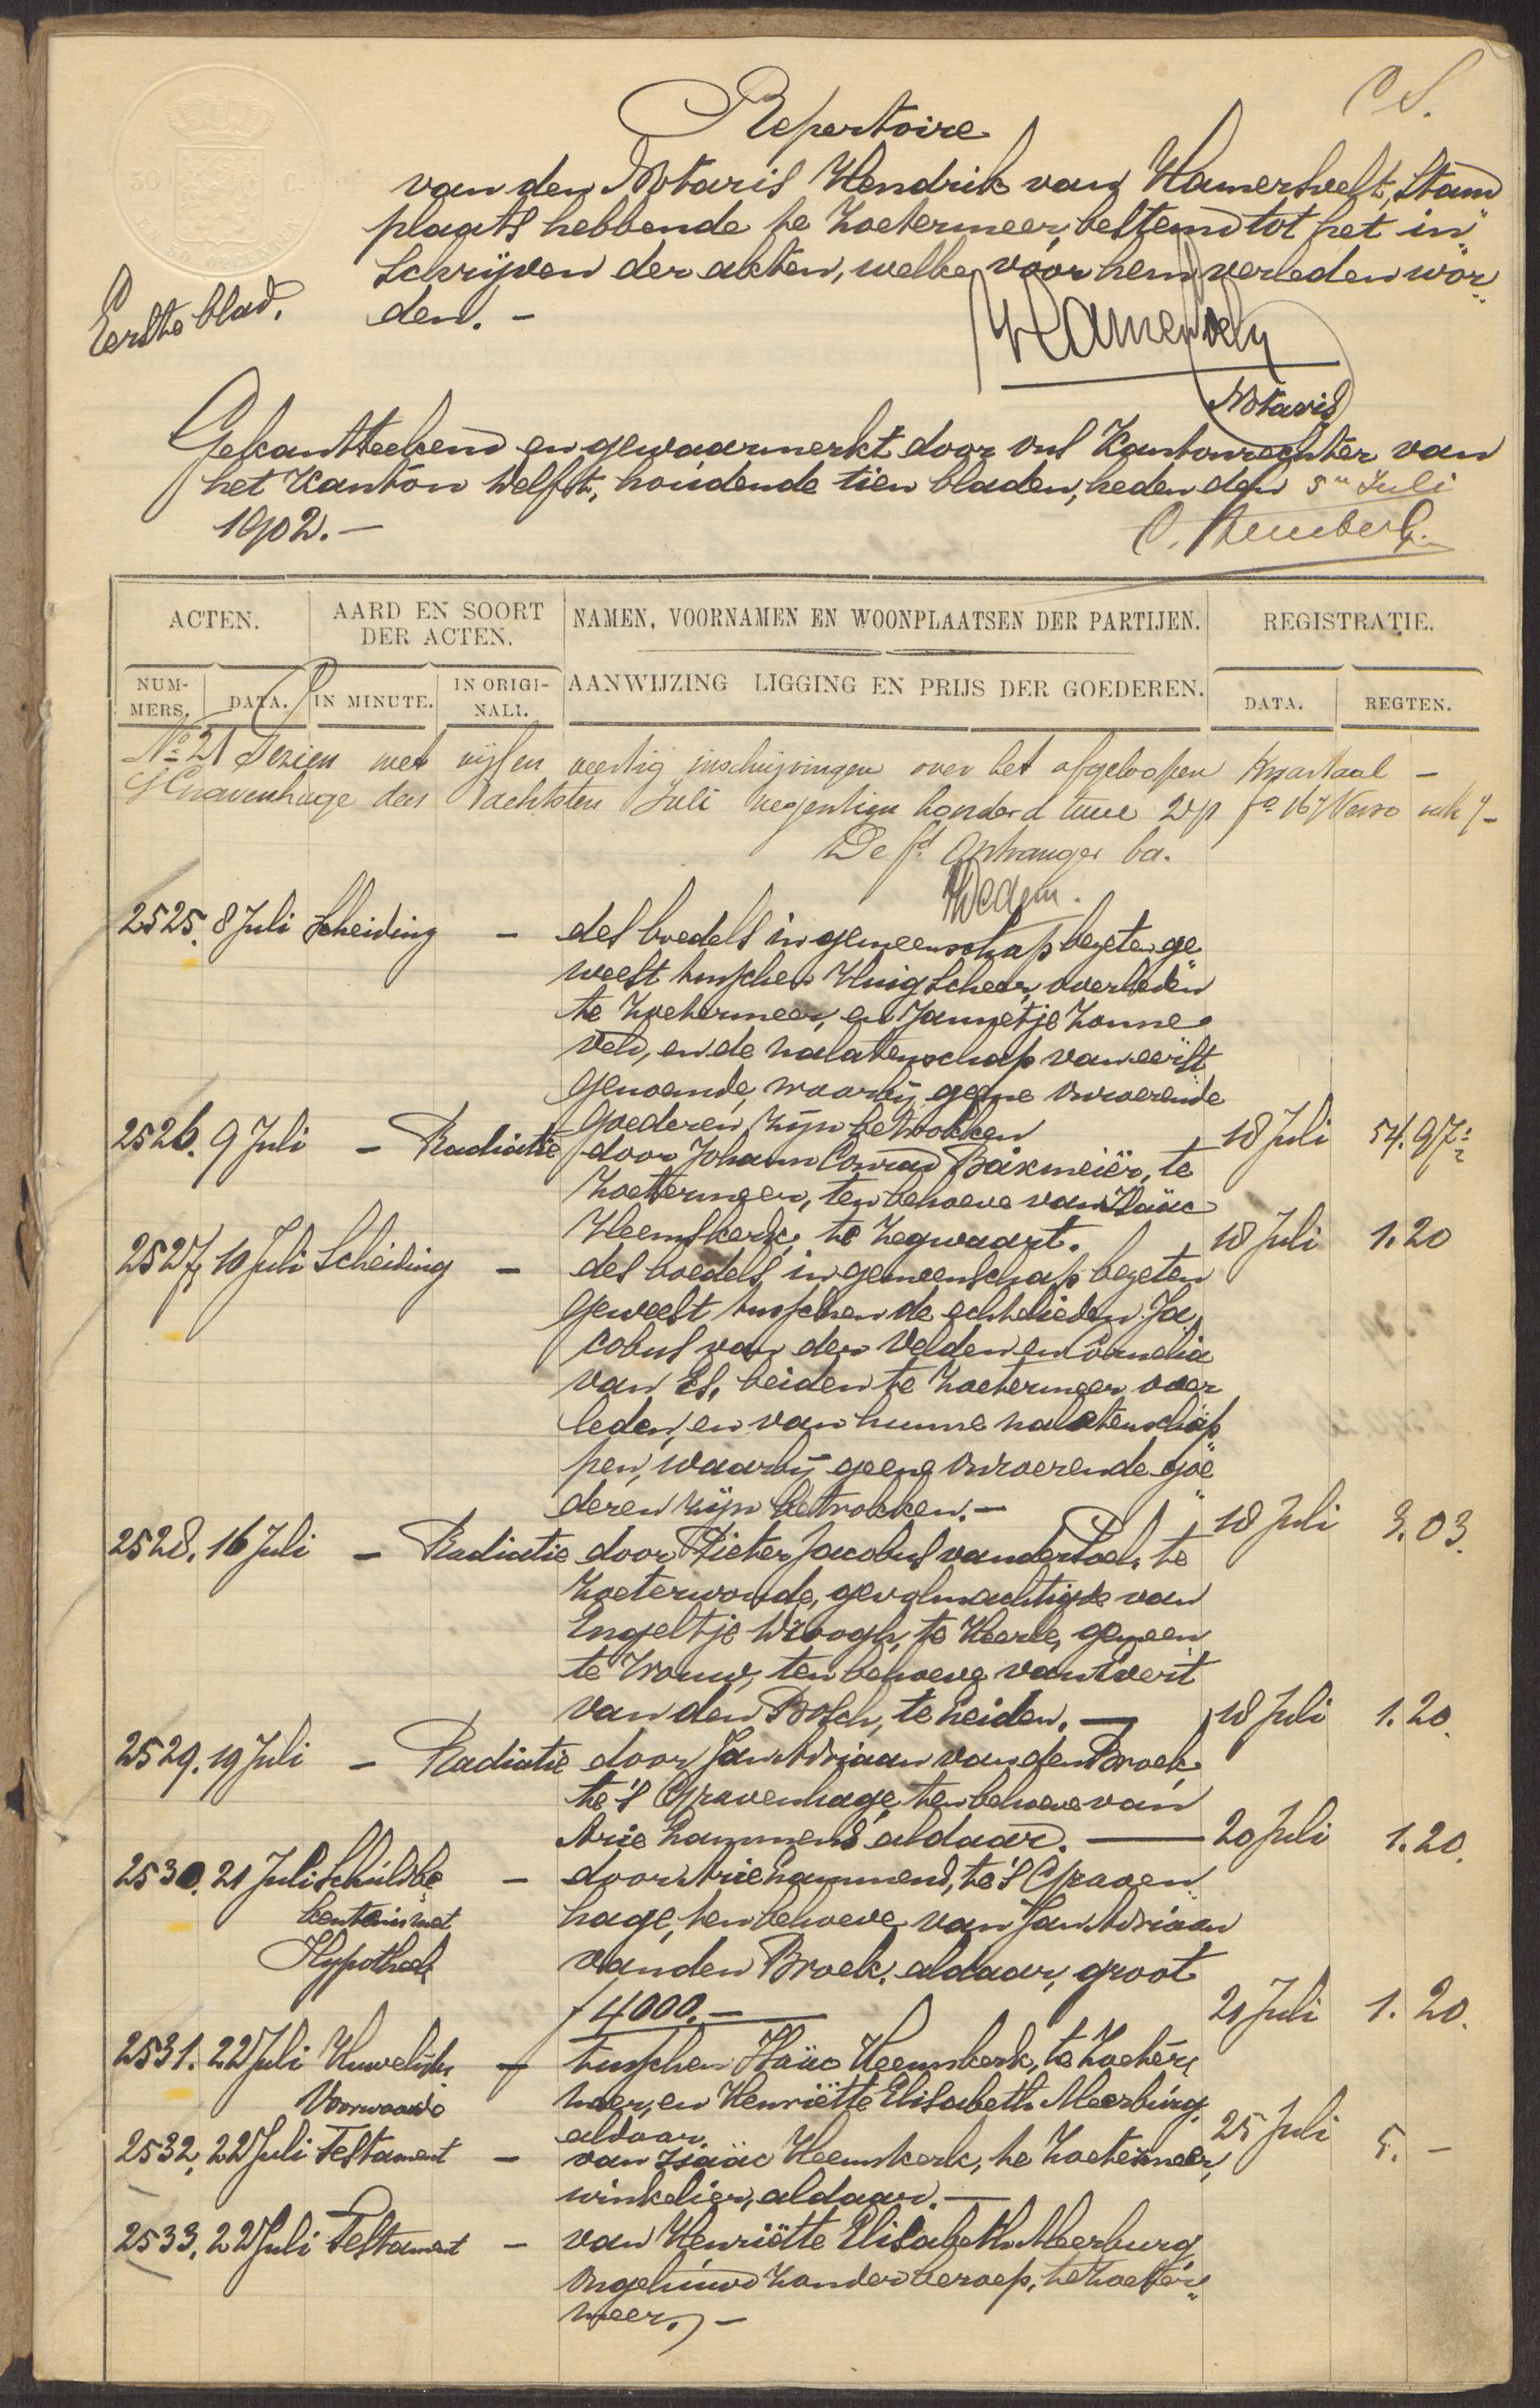 C S.
Repertoire
van den Notaris Hendrik van Hamersvelt, Stand
plaats hebbende te Zoetermeer, bestemd tot het in
schrijven der akten, welke voor hem verleden wor
den. -
Eerste blad.
Notaris
Gekantteekend en gewaarmerkt door ons Kantonrechter van
het Kanton Delft, houdende tien bladen, heden den 5n Juli
1902. -
ACTEN. AARD EN SOORT DER ACTEN. NAMEN, VOORNAMEN EN WOONPLAATSEN DER PARTIJEN. REGISTRATIE.
NUM-MERS. DATA. IN MINUTE. IN ORIGI-NALI. AANWIJZING LIGGING EN PRIJS DER GOEDEREN. DATA. REGTEN.
No 21 Gezien met vijf en veertig inschrijvingen over het afgeloopen Kwartaal -
's Gravenhage den achtsten Juli negentien honderd twee fo 167 Verso vak 7 -
De fd Ontvanger ba.
2525. 8 Juli Scheiding - des boedels in gemeenschap bezeten ge
weest tusschen Huig Scheer, overleden
te Zoetermeer, en Jannetje Zonne
veld, en de nalatenschap van eerst
genoemde, waarbij geene onroerende
goederen zijn betrokken 18 Juli 54.97
2526. 9 Juli - Radiatie door Johann Conrad Bakmeiër, te
Zoetermeer, ten behoeve van Isäac
Heemskerk, te Zegwaart. 18 Juli 1.20
2527. 10 Juli Scheiding - des boedels in gemeenschap bezeten
geweest tusschen de echtelieden Ja
cobus van der Velden en Cornelia
van Es, beiden te Zoetermeer over
leden, en van hunne nalatenschap
pen, waarbij geene onroerende goe
deren zijn betrokken. - 18 Juli 3.03.
2528. 16 Juli - Radiatie door Pieter Jacobus van der Poel, te
Zoeterwoude, gevolmachtigde van
Engeltje Droogh, te Heerle, gemeen
te Wouw, ten behoeve van Evert
van den Bosch, te Leiden. - 18 Juli 1.20.
2529. 19 Juli - Radiatie door Jan Adriaan van den Broek,
te 's Gravenhage, ten behoeve van
Arie Lammens, aldaar. - 20 Juli 1.20.
2530. 21 Juli Schuldbe - door Arie Lammens, te 's Graven
kentenis met hage, ten behoeve van Jan Adriaan
Hypotheek van den Broek, aldaar, groot
f 4000. - 21 Juli 1.20.
2531. 22 Juli Huwelijks - tusschen Isäac Heemskerk, te Zoeter
Voorwaarde meer, en Henriëtte Elisabeth Meerburg,
aldaar. 25 Juli 5. -
2532. 22 Juli Testament - van Isäac Heemskerk, te Zoetermeer,
winkelier, aldaar. -
2533. 22 Juli Testament - van Henriëtte Elisabeth Meerburg,
ongehuwd zonder beroep, te Zoeter
meer. -